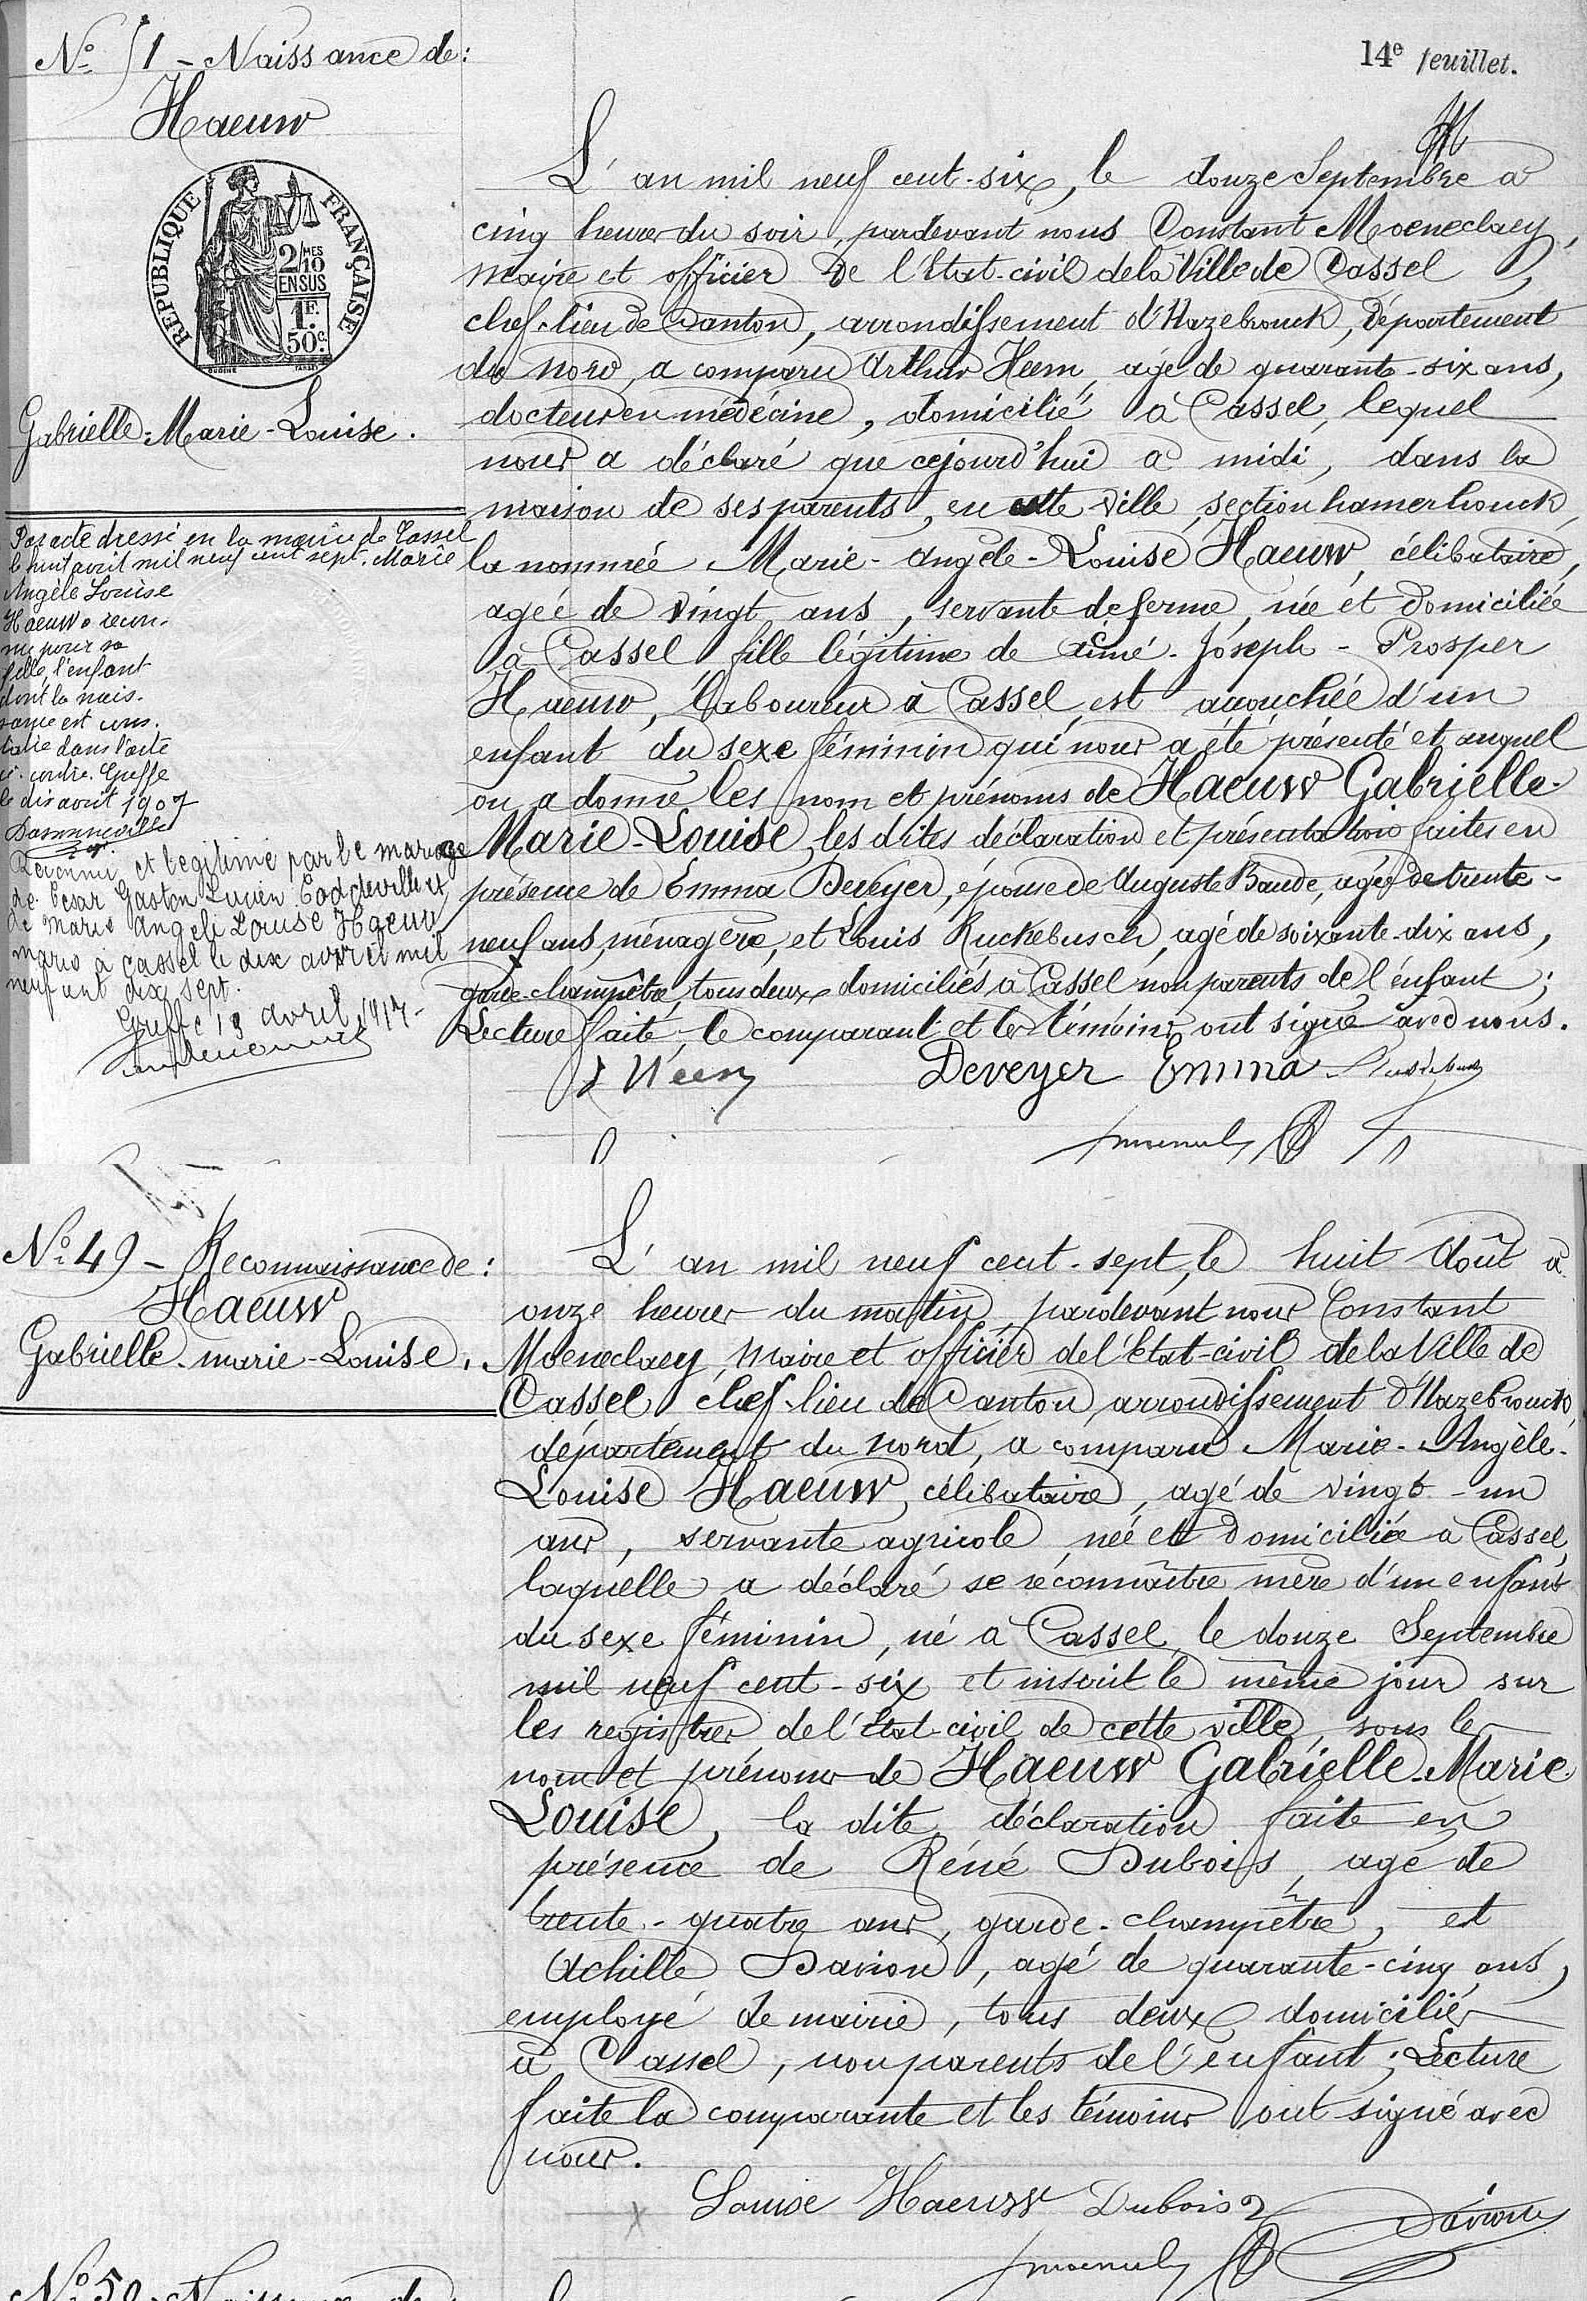 14e feuillet.
No 51 - Naissance de:
Haeuw
RÉPUBLIQUE FRANÇAISE
2/10 MES
EN SUS
1F.
50c.
Gabrielle-Marie-Louise.
Par acte dressé en la mairie de Cassel
le huit août mil neuf cent sept. Marie
Angèle Louise
Haeuw a recon-
nu pour sa
fille, l'enfant
dont la nais-
sance est cons-
tatée dans l'acte
ci-contre. Greffe
le dix août 1907
Reconnu et légitimé par le mariage
de César Gaston Lucien
de Marie Angèle Louise Haeuw
mariés à Cassel le dix avril mil
neuf cent dix sept.
Greffe 13 avril 1917-
L'an mil neuf cent-six, le douze Septembre à
cinq heures du soir, pardevant nous Constant Moeneclaey,
Maire et officier de l'Etat-civil de la Ville de Cassel,
chef-lieu de Canton, arrondissement d'Hazebrouck, Département
du Nord, a comparu Arthur Heem, agé de quarante-six ans,
docteur en médécine, domicilié à Cassel, lequel
nous a déclaré que cejourd'hui à midi, dans la
maison de ses parents, en cette ville, section hamerhouck,
la nommée Marie-Angèle-Louise Haeuw, célibataire,
agée de vingt ans, servante de ferme, née et domiciliée
à Cassel fille légitime de Aimé-Joseph-Prosper
Haeuw, laboureur à Cassel, est accouchée d'un
enfant du sexe féminin qui nous a été présenté et auquel
on a donné les nom et prénoms de Haeuw Gabrielle-
Marie-Louise, les dites déclaration et présentation faites en
présence de Emma Deveyer, épouse de Auguste Baude, agée de trente-
neuf ans, ménagère, et Louis Ruckebusch, agé de soixante-dix ans,
garde-champêtre, tous deux domiciliés à Cassel non parents de l'enfant;
Lecture faite, le comparant et les témoins ont signé avec nous.
Deveyer Emma
No 49 - Reconnaissance de:
Haeuw
Gabrielle-marie-Louise.
L'an mil neuf cent-sept, le huit Août à
onze heures du matin, pardevant nous Constant
Moeneclaey, Maire et officier de l'Etat-civil de la Ville de
Cassel chef-lieu de Canton, arrondissement d'Hazebrouck,
département du Nord, a comparu Marie-Angèle-
Louise Haeuw, célibataire, agé de vingt-un
ans, servante agricole, née et domiciliée à Cassel,
laquelle a déclaré se réconnaître mère d'un enfant
du sexe féminin, né à Cassel, le douze Septembre
mil neuf cent-six et inscrit le même jour sur
les registres de l'Etat-civil de cette ville, sous les
nom et prénoms de Haeuw Gabrielle-Marie-
Louise, la dite déclaration faite en
présence de Réné Dubois, agé de
trente-quatre ans, garde-champêtre, et
Achille Davion, agé de quarante-cinq ans,
employé de mairie, tous deux domiciliés
à Cassel, non parents de l'enfant; Lecture
faite la comparante et les témoins ont signé avec
nous.
Louise Haeuw Dubois R Davion
No 50 - Naissance de